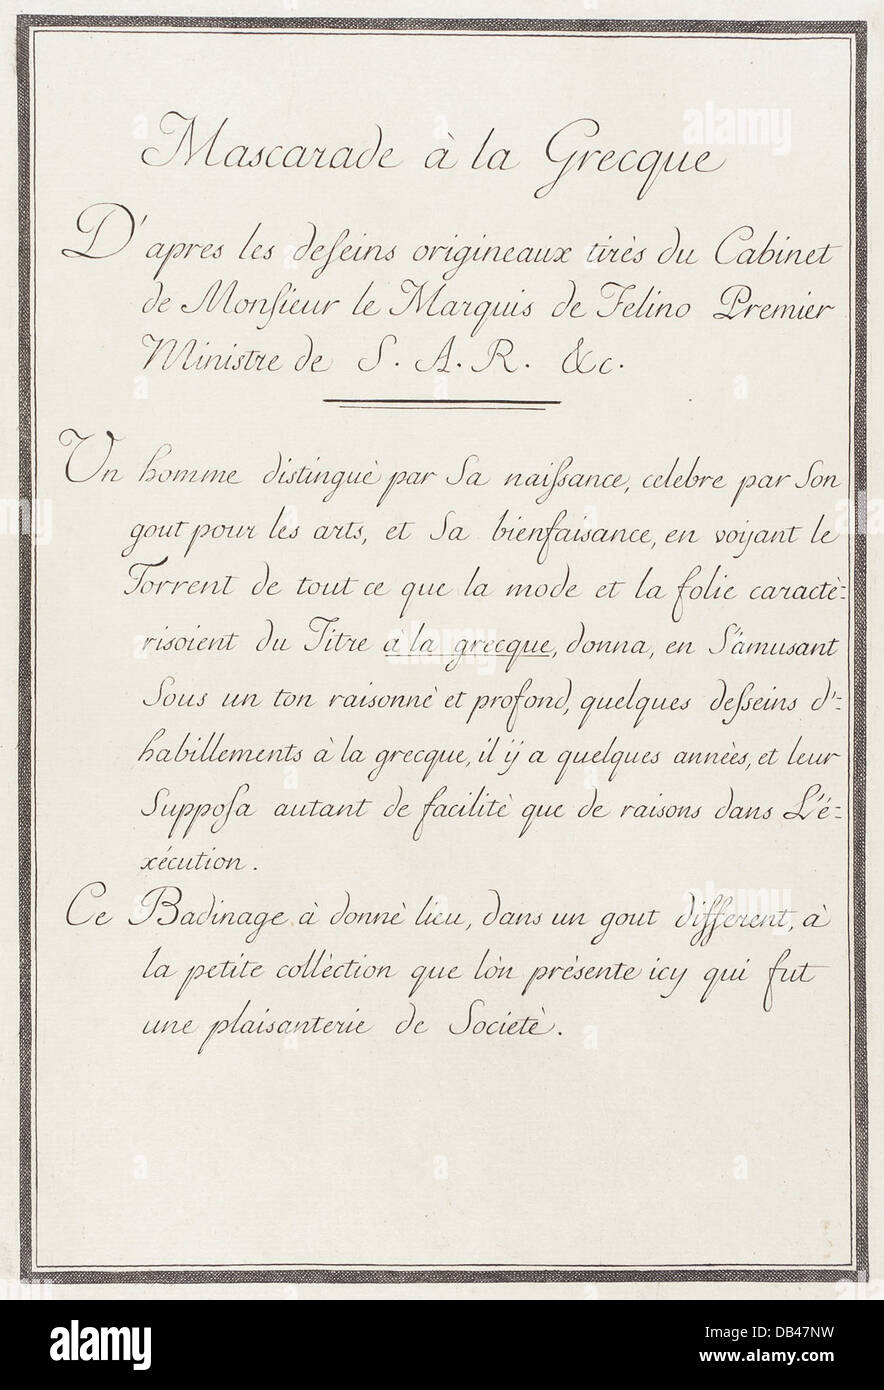 Mascarade à la Grecque
D'apres les desseins origineaux tirès du Cabinet
de Monsieur le Marquis de Felino Premier
Ministre de S. A. R. &c.
Un homme distinguè par Sa naissance, celebre par Son
gout pour les arts, et Sa bienfaisance, en voyant le
Torrent de tout ce que la mode et la folie caractè=
risoient du Titre à la grecque, donna, en S'amusant
Sous un ton raisonnè et profond, quelques desseins d'=
habillements à la grecque, il y a quelques années, et leur
Supposa autant de facilitè que de raisons dans L'é=
xécution.
Ce Badinage à donnè lieu, dans un gout different, à
la petite collèction que lòn présente icy qui fut
une plaisanterie de Societè.
alamy
Image ID: DB47NW
www.alamy.com